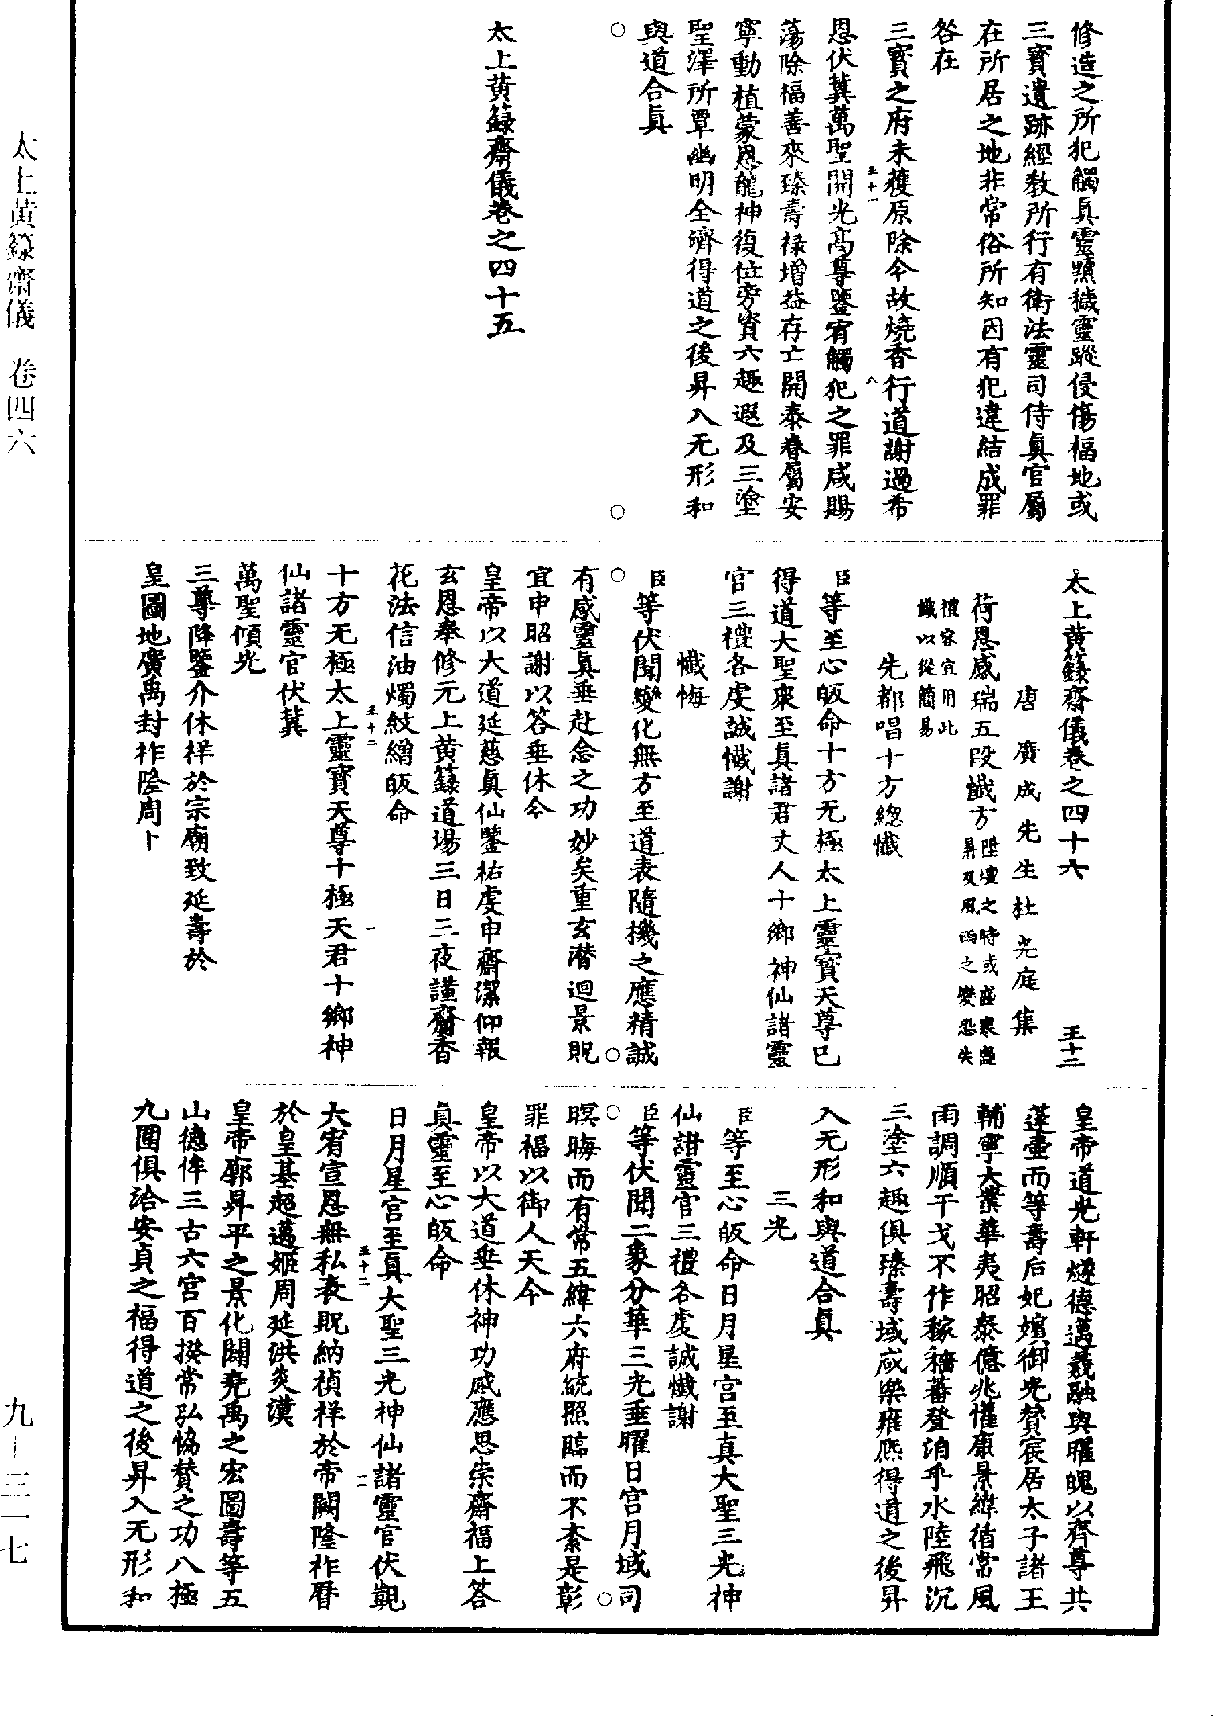 修造之所犯觸真靈顯穢靈蹤侵傷福地或
三寶遺跡經教所行有衛法靈司侍真官屬
在所居之地非常俗所知因有犯違結成罪
咎在
三寶之府未獲原除今故燒香行道謝過希
恩伏冀萬聖開光高尊鑒宥觸犯之罪咸賜
蕩除福善來臻壽祿增益存亡開泰眷屬安
寧動植蒙恩龍神復位旁資六趣遐及三塗
聖澤所覃幽明全濟得道之後昇入无形和
與道合真
太上黃籙齋儀卷之四十五
太上黃籙齋儀卷之四十六 王十二
唐廣成先生杜光庭集
荷恩感瑞五段懺方
禮容宜用此
懺以從簡易
先都唱十方總懺
臣等至心皈命十方无極太上靈寶天尊已
得道大聖衆至真諸君丈人十鄉神仙諸靈
官三禮各虔誠懺謝
懺悔
臣等伏聞變化無方至道表隨機之應精誠
有感靈真垂赴念之功妙矣重玄潛迴景貺
宜申昭謝以答垂休今
皇帝以大道延慈真仙鑒祐虔申齋潔仰報
玄恩奉修元上黃籙道場三日三夜謹齎香
花法信油燭紋繒皈命
十方无極太上靈寶天尊十極天君十鄉神
仙諸靈官伏冀
萬聖傾光
三尊降鑒介休祥於宗廟致延壽於
皇圖地廣禹封祚隆周卜
皇帝道光軒燧德邁羲融與曜魄以齊尊共
蓬壺而等壽后妃嬪御光贊宸居太子諸王
輔寧大業華夷昭泰億兆懽康景緯循常風
雨調順干戈不作稼穡蕃登洎乎水陸飛沉
三塗六趣俱臻壽域咸樂雍熙得道之後昇
入无形和與道合真
三光
臣等至心皈命日月星宫至真大聖三光神
仙諸靈官三禮各虔誠懺謝
臣等伏聞二象分華三光垂曜日宫月域司
暝晦而有常五緯六府統照臨而不紊是彰
罪福以御人天今
皇帝以大道垂休神功感應思崇齋福上答
真靈至心皈命
日月星宫至真大聖三光神仙諸靈官伏覬
大宥宣恩無私表貺納禎祥於帝闕隆祚曆
於皇基超邁姬周延洪炎漢
皇帝廓昇平之景化闢堯禹之宏圖壽等五
山德侔三古六宫百揆常弘恊贊之功八極
九圍俱洽安貞之福得道之後昇入无形和
太上黃籙齋儀 卷四六
九—三一七